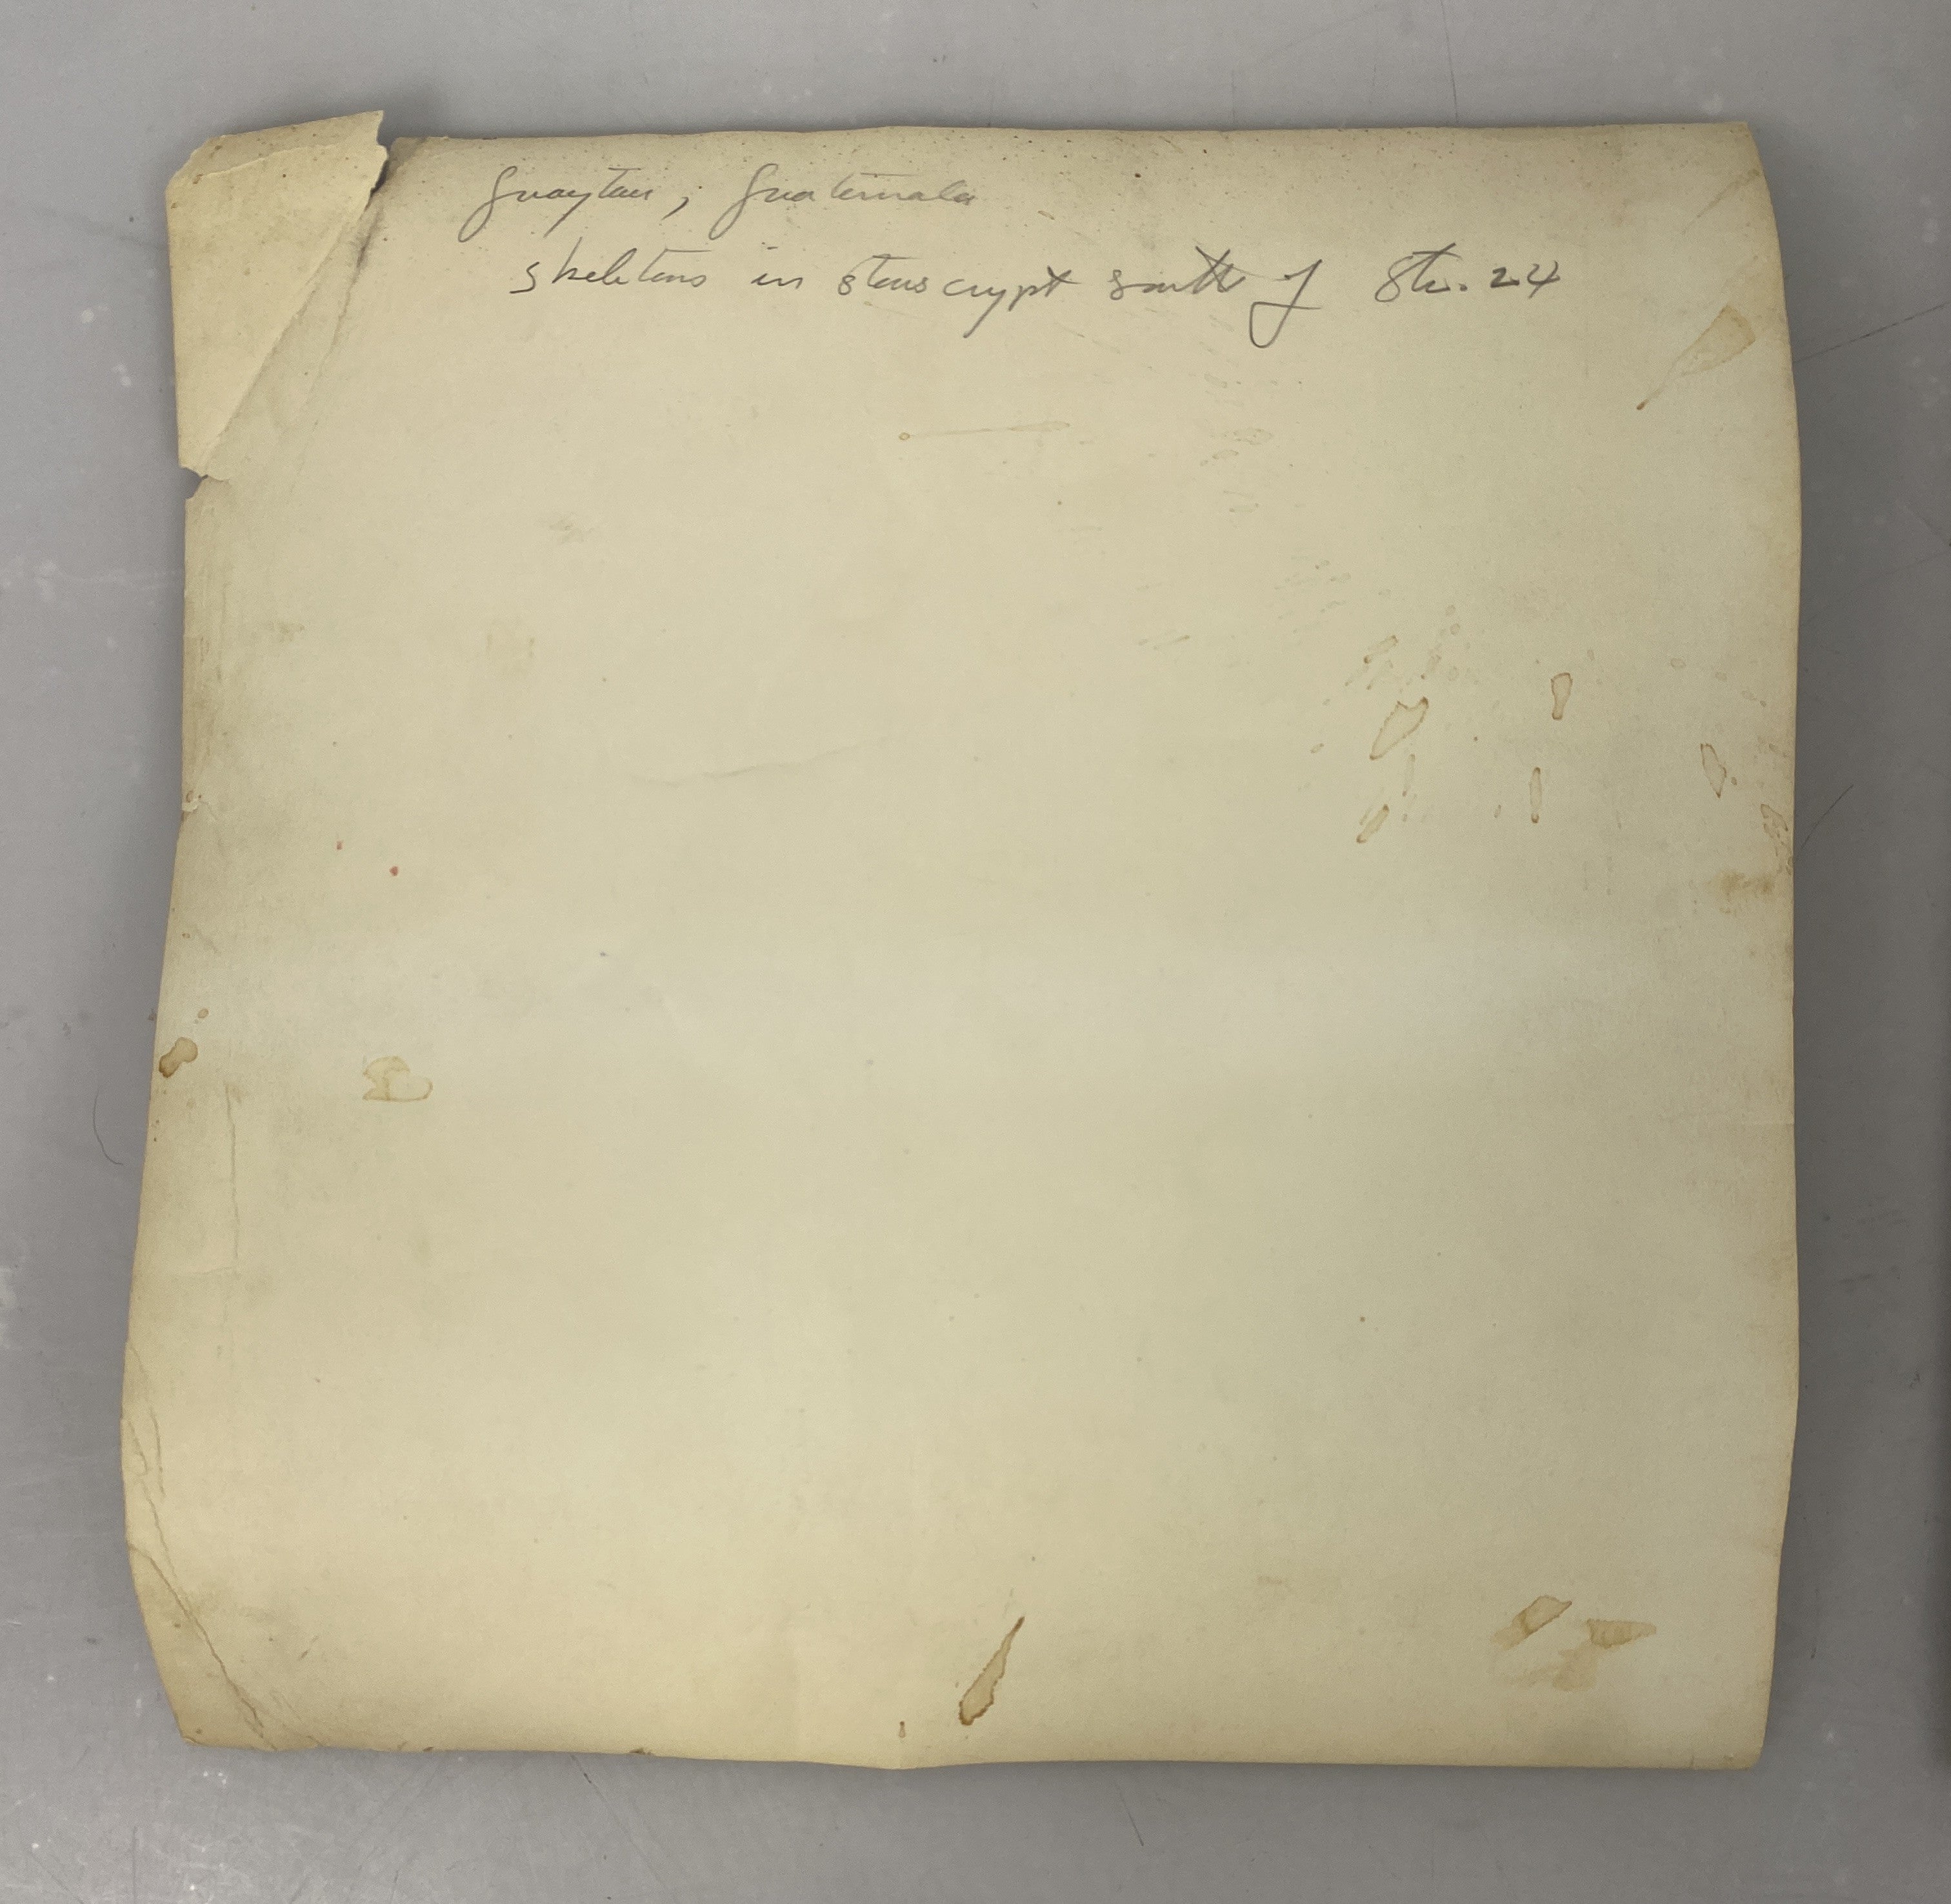 Guaytan, Guatemala
skeletons in stone crypt south of Str. 24